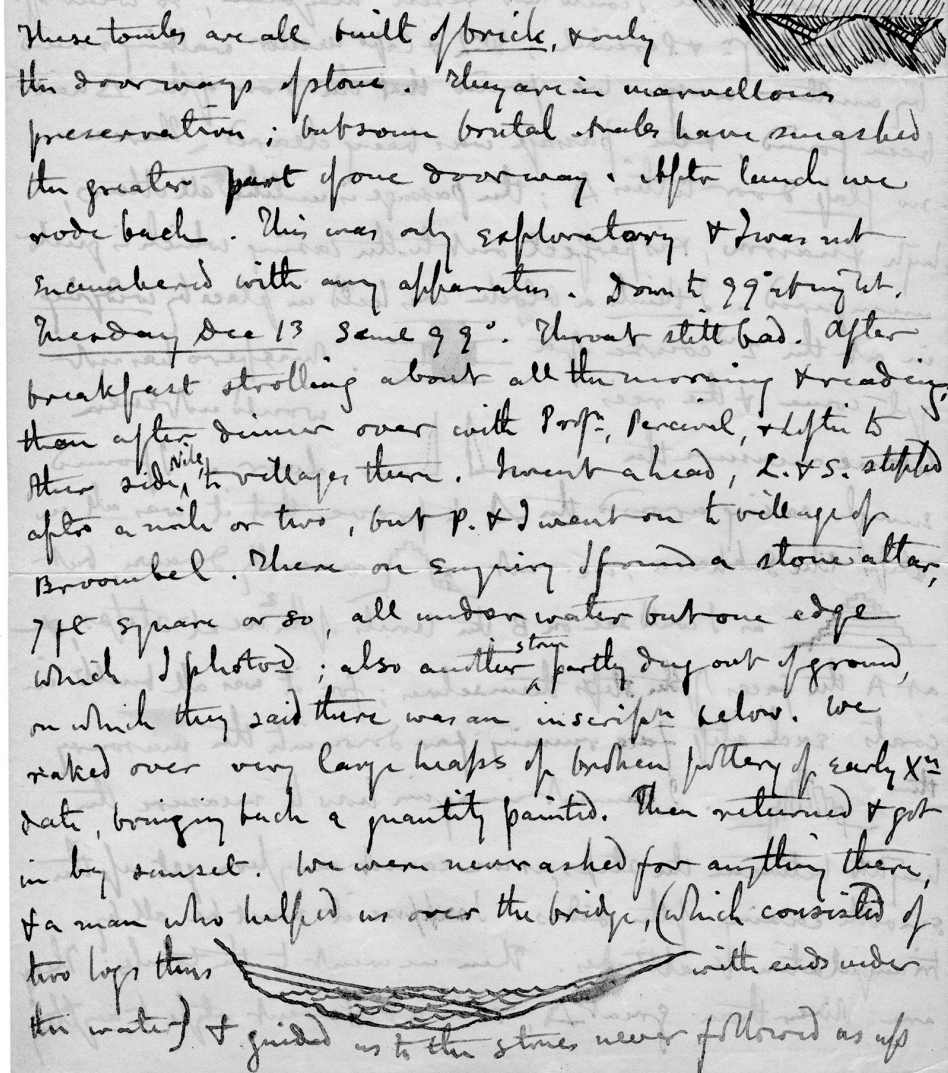 These tombs are all built of brick, & only
the doorways of stone. They are in marvellous
preservation; but some brutal males have smashed
the greater part of one doorway. After lunch we
rode back. This was only exploratory & I was not
encumbered with any apparatus. Down to 99° at night.
Tuesday Dec 13 Same 99°. Throat still bad. After
breakfast strolling about all the morning & reading,
then after dinner over with Profn, Percival, & Loftie to
other side Nile, to villages there. I went ahead, L. & S. stopped
after a mile or two, but P. & I went on to village of
Broombel. There on enquiry I found a stone altar,
7 ft square or so, all under water but one edge
which I photod; also another stone partly dug out of ground,
on which they said there was an inscripn below. We
raked over very large heaps of broken pottery of early Xn
date, bringing back a quantity painted. Then returned & got
in by sunset. We were never asked for anything there,
& a man who helped us over the bridge, (which consisted of
two logs thus with ends under
the water) & guided us to the stones never followed us up